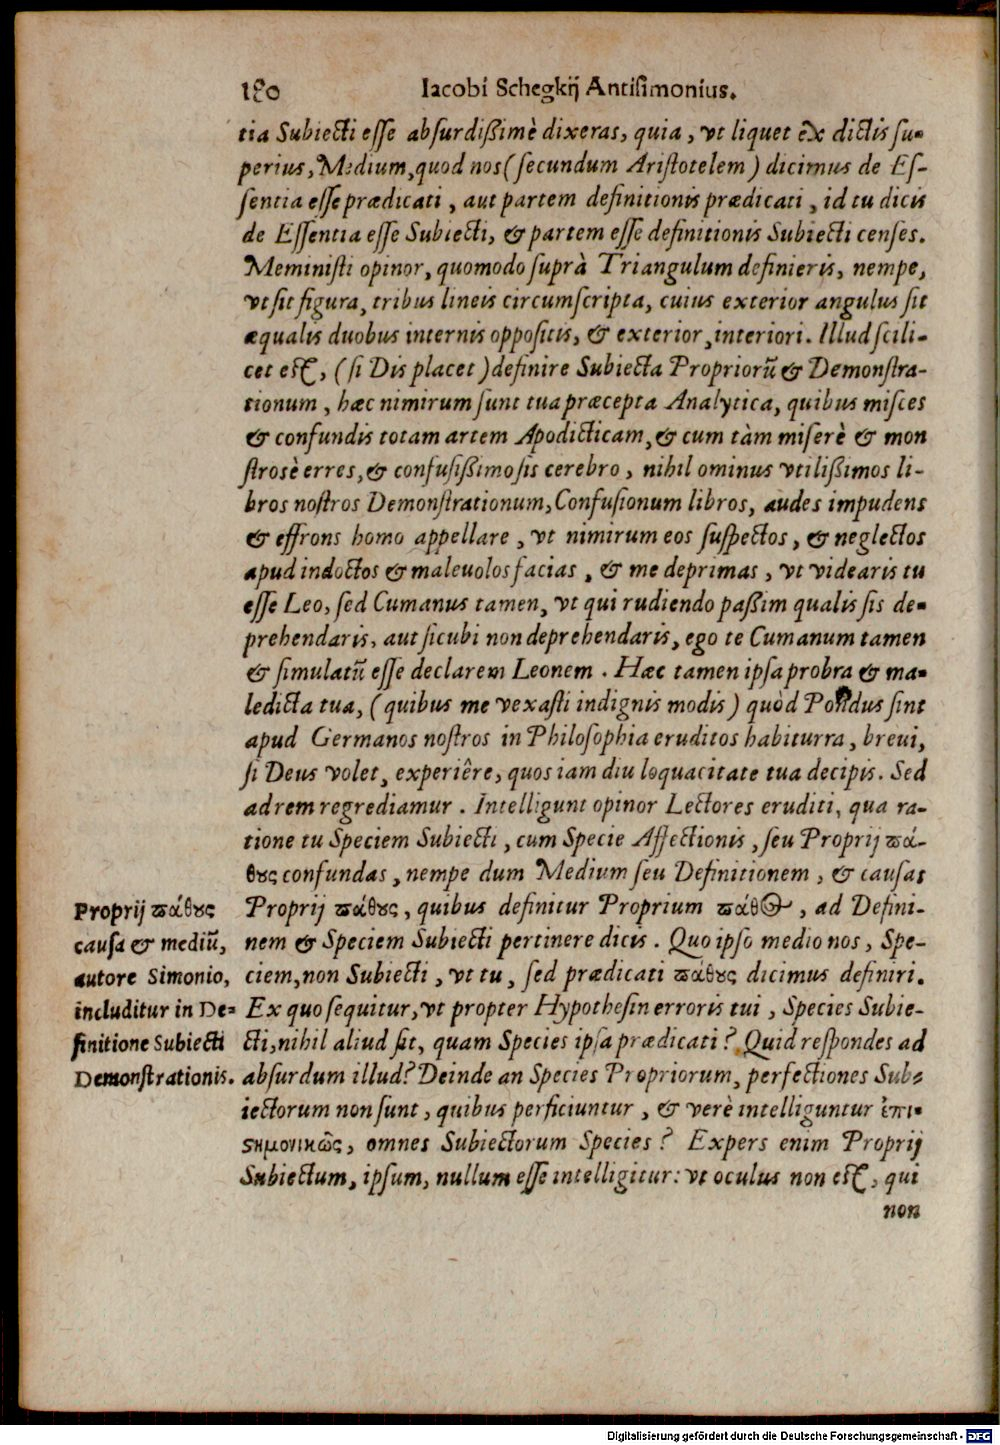 180 Iacobi Schegkij Antisimonius.
tia Subiecti esse absurdißimè dixeras, quia, vt liquet ex dictis su-
perius, Medium, quod nos (secundum Aristotelem) dicimus de Es-
sentia esse prædicati, aut partem definitionis prædicati, id tu dicis
de Essentia esse Subiecti, & partem esse definitionis Subiecti censes.
Meministi opinor, quomodo suprà Triangulum definieris, nempe,
vt sit figura, tribus lineis circumscripta, cuius exterior angulus sit
æqualis duobus internis oppositis, & exterior, interiori. Illud scili-
cet est, (si Dis placet) definire Subiecta Propriorũ & Demonstra-
tionum, hæc nimirum sunt tua præcepta Analytica, quibus misces
& confundis totam artem Apodicticam, & cum tàm miserè & mon
strosè erres, & confusißimo sis cerebro, nihilominus vtilißimos li-
bros nostros Demonstrationum, Confusionum libros, audes impudens
& effrons homo appellare, vt nimirum eos suspectos, & neglectos
apud indoctos & maleuolos facias, & me deprimas, vt videaris tu
esse Leo, sed Cumanus tamen, vt qui rudiendo paßim qualis sis de-
prehendaris, aut sicubi non deprehendaris, ego te Cumanum tamen
& simulatũ esse declarem Leonem. Hæc tamen ipsa probra & ma-
ledicta tua, (quibus me vexasti indignis modis) quòd Pondus sint
apud Germanos nostros in Philosophia eruditos habiturra, breui,
si Deus volet, experiêre, quos iam diu loquacitate tua decipis. Sed
ad rem regrediamur. Intelligunt opinor Lectores eruditi, qua ra-
tione tu Speciem Subiecti, cum Specie Affectionis, seu Proprij ϖά-
θȣς confundas, nempe dum Medium seu Definitionem, & causas
Proprij ϖάθȣς, quibus definitur Proprium ϖάθος, ad Defini-
nem & Speciem Subiecti pertinere dicis. Quo ipso medio nos, Spe-
ciem, non Subiecti, vt tu, sed prædicati ϖάθȣς dicimus definiri.
Ex quo sequitur, vt propter Hypothesin erroris tui, Species Subie-
cti, nihil aliud sit, quam Species ipsa prædicati? Quid respondes ad
absurdum illud? Deinde an Species Propriorum, perfectiones Sub-
iectorum non sunt, quibus perficiuntur, & verè intelliguntur ἐπι-
ϛημονικῶς, omnes Subiectorum Species? Expers enim Proprij
Subiectum, ipsum, nullum esse intelligitur: vt oculus non est, qui
non
Proprij ϖάθȣς
causa & mediũ,
autore Simonio,
includitur in De-
finitione Subiecti
Demonstrationis.
Digitalisierung gefördert durch die Deutsche Forschungsgemeinschaft - DFG